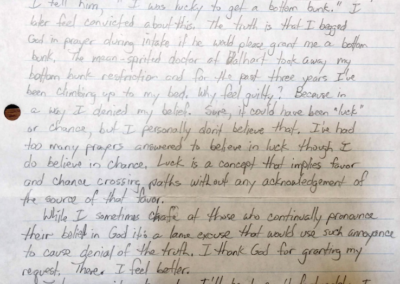 I tell him, "I was lucky to get a bottom bunk." I
later feel convicted about this. The truth is that I begged
God in prayer during intake if he would please grant me a bottom
bunk. The mean-spirited doctor of took away my
bottom bunk restriction and for the past three years I've
been climbing up to my bed. Why feel guilty? Because in
a way I denied my belief. Sure, it could have been "luck"
or chance, but I personally don't believe that. I've had
too many prayers answered to believe in luck though I
do believe in chance. Luck is a concept that implies favor
and chance crossing paths without any acknowledgement of
the source of that favor.
While I sometimes chafe at those who continually pronounce
their belief in God it's a lame excuse that would use such annoyance
to cause denial of the truth. I thank God for granting my
request. There. I feel better.